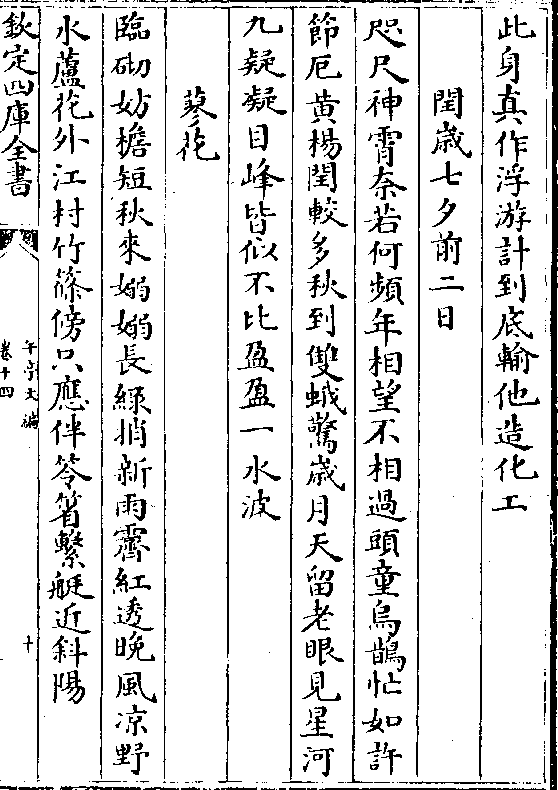 此身真作浮游計到底輸他造化工
閏歳七夕前二日
咫尺神霄奈若何頻年相望不相過頭童烏鵲忙如許
節厄黄楊閏較多秋到雙蛾驚歳月天留老眼見星河
九疑疑目峰皆似不比盈盈一水波
蓼花
臨砌妨檐短秋來嫋嫋長緑捎新雨霽紅透晚風凉野
水蘆花外江村竹篠傍只應伴笭箵繫艇近斜陽
欽定四庫全書
午亭文編
卷十四
十